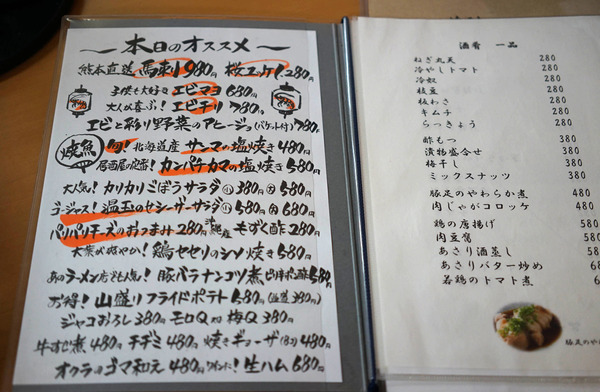 本日のオススメ
熊本直送 馬刺し980円 桜ユッケ1,280円
子供も大好き エビマヨ 680円
大人が喜ぶ! エビチリ 780円
エビと彩り野菜のアヒージョ(バケット付)780円
焼魚
旬! 北海道産 サンマの塩焼き 480円
居酒屋の定番! カンパチカマの塩焼き 580円
大人気! カリカリごぼうサラダ 小380円 大580円
ゴージャス! 温玉のせシーザーサラダ 小580円 大680円
パリパリチーズのおつまみ 280円 沖縄産 もずく酢 280円
大葉が爽やか! 鶏セセリのシソ焼き 580円
あのラーメン店でも人気! 豚バラナンコツ煮 ピリ辛ポン酢 580円
お得! 山盛りフライドポテト 580円 (普通380円)
ジャコおろし 380円 モロQ 梅Q 380円
牛すじ煮 480円 チヂミ 480円 焼きギョーザ(8コ)480円
オクラのゴマ和え 480円 ワインに! 生ハム 680円
酒肴 一品
ねぎ丸天 280
冷やしトマト 280
冷奴 280
枝豆 280
板わさ 280
キムチ 280
らっきょう 280
酢もつ 380
漬物盛合せ 380
梅干し 380
ミックスナッツ 380
豚足のやわらか煮 480
肉じゃがコロッケ 480
鶏の唐揚げ 580
肉豆腐 580
あさり酒蒸し 580
あさりバター炒め 680
若鶏のトマト煮 680
豚足のや